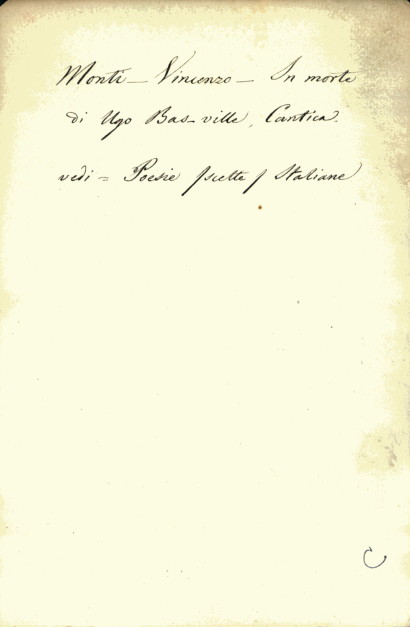 Monti - Vincenzo - In morte
di Ugo Bas-ville, Cantica.
vedi = Poesie /scelte/ Italiane